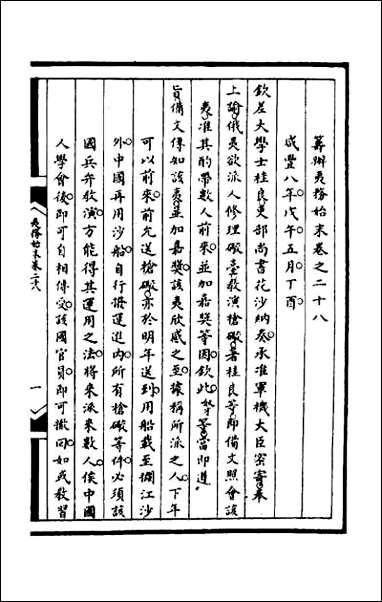 籌辦夷務始末卷之二十八
咸豐八年戊午五月丁酉
欽差大學士桂良吏部尚書花沙納奏承准軍機大臣密寄奉
上諭俄夷欲派人修理礮臺教演槍礮著桂良等即備文照會該
夷准其酌帶數人前來並加嘉獎等因欽此奴才等當即遵
旨備文傳知該夷並加嘉獎該夷欣感之至據稱所派之人下年
可以前來前允送槍礮亦於明年送到用船載至攔江沙
外中國再用沙船自行撥運進內所有槍礮等件必須該
國兵弁教演方能得其運用之法將來派來數人俟中國
人學會後即可自相傳受該國官員即可撤回如或教習
夷務始末卷二十八
一